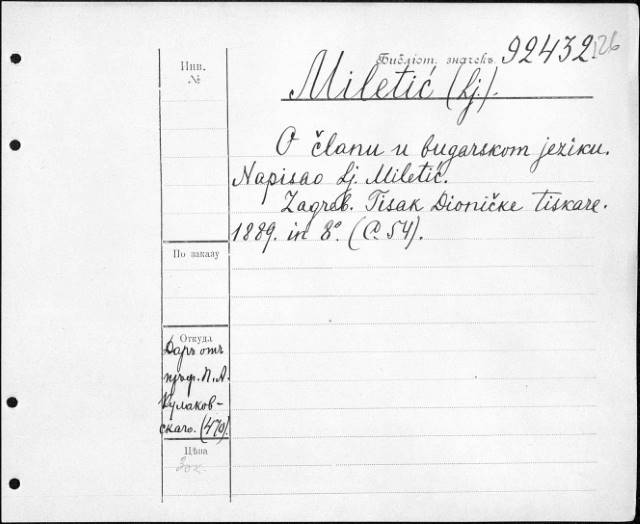 Библіот. значекъ 92432 126
Инв.
№
Miletić (Lj.).
O članu u bugarskom jeziku.
Napisao Lj. Miletić.
Zagreb. Tisak Dioničke tiskare.
1889. in 8°. (C. 54).
По заказу
Откуда
Даръ отъ
проф. П. А.
Кулаков-
скаго. (479).
Цѣна
30к.